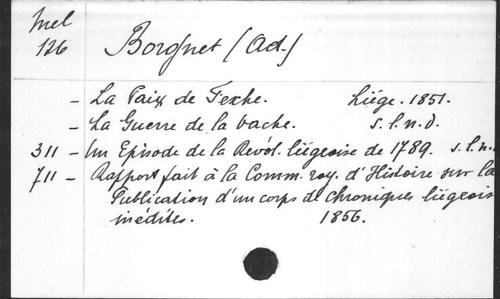 Mel
126
Borgnet (Ad.)
- La Paix de Fexhe. Liége. 1851.
- La Guerre de la vache. s. l. n. d.
311 - Un Episode de la Revol. liégeoise de 1789. s. l. n.
711 - Rapport fait à la Comm. roy. d'Histoire sur la
Publication d'un corps de chroniques liégeois
inédites. 1856.